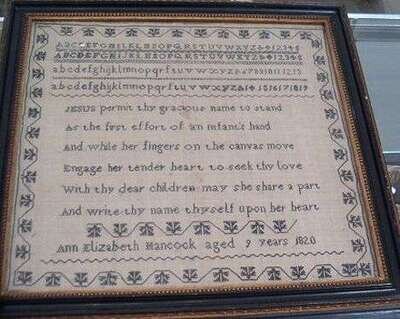 ABCDEFGHIJKLMNOPQRSTUVWXYZ&12345
ABCDEFGHIJKLMNOPQRSTUVWXYZ&12345
abcdefghijklmnopqrſtuvwxyz
abcdefghijklmnopqrſtuvwxyz
JESUS permit thy gracious name to stand
As the firſt effort of an infant's hand
And while her fingers on the canvas move
Engage her tender heart to seek thy love
With thy dear children may she share a part
And write thy name thyself upon her heart
Ann Elizabeth Hancock aged 9 years 1820